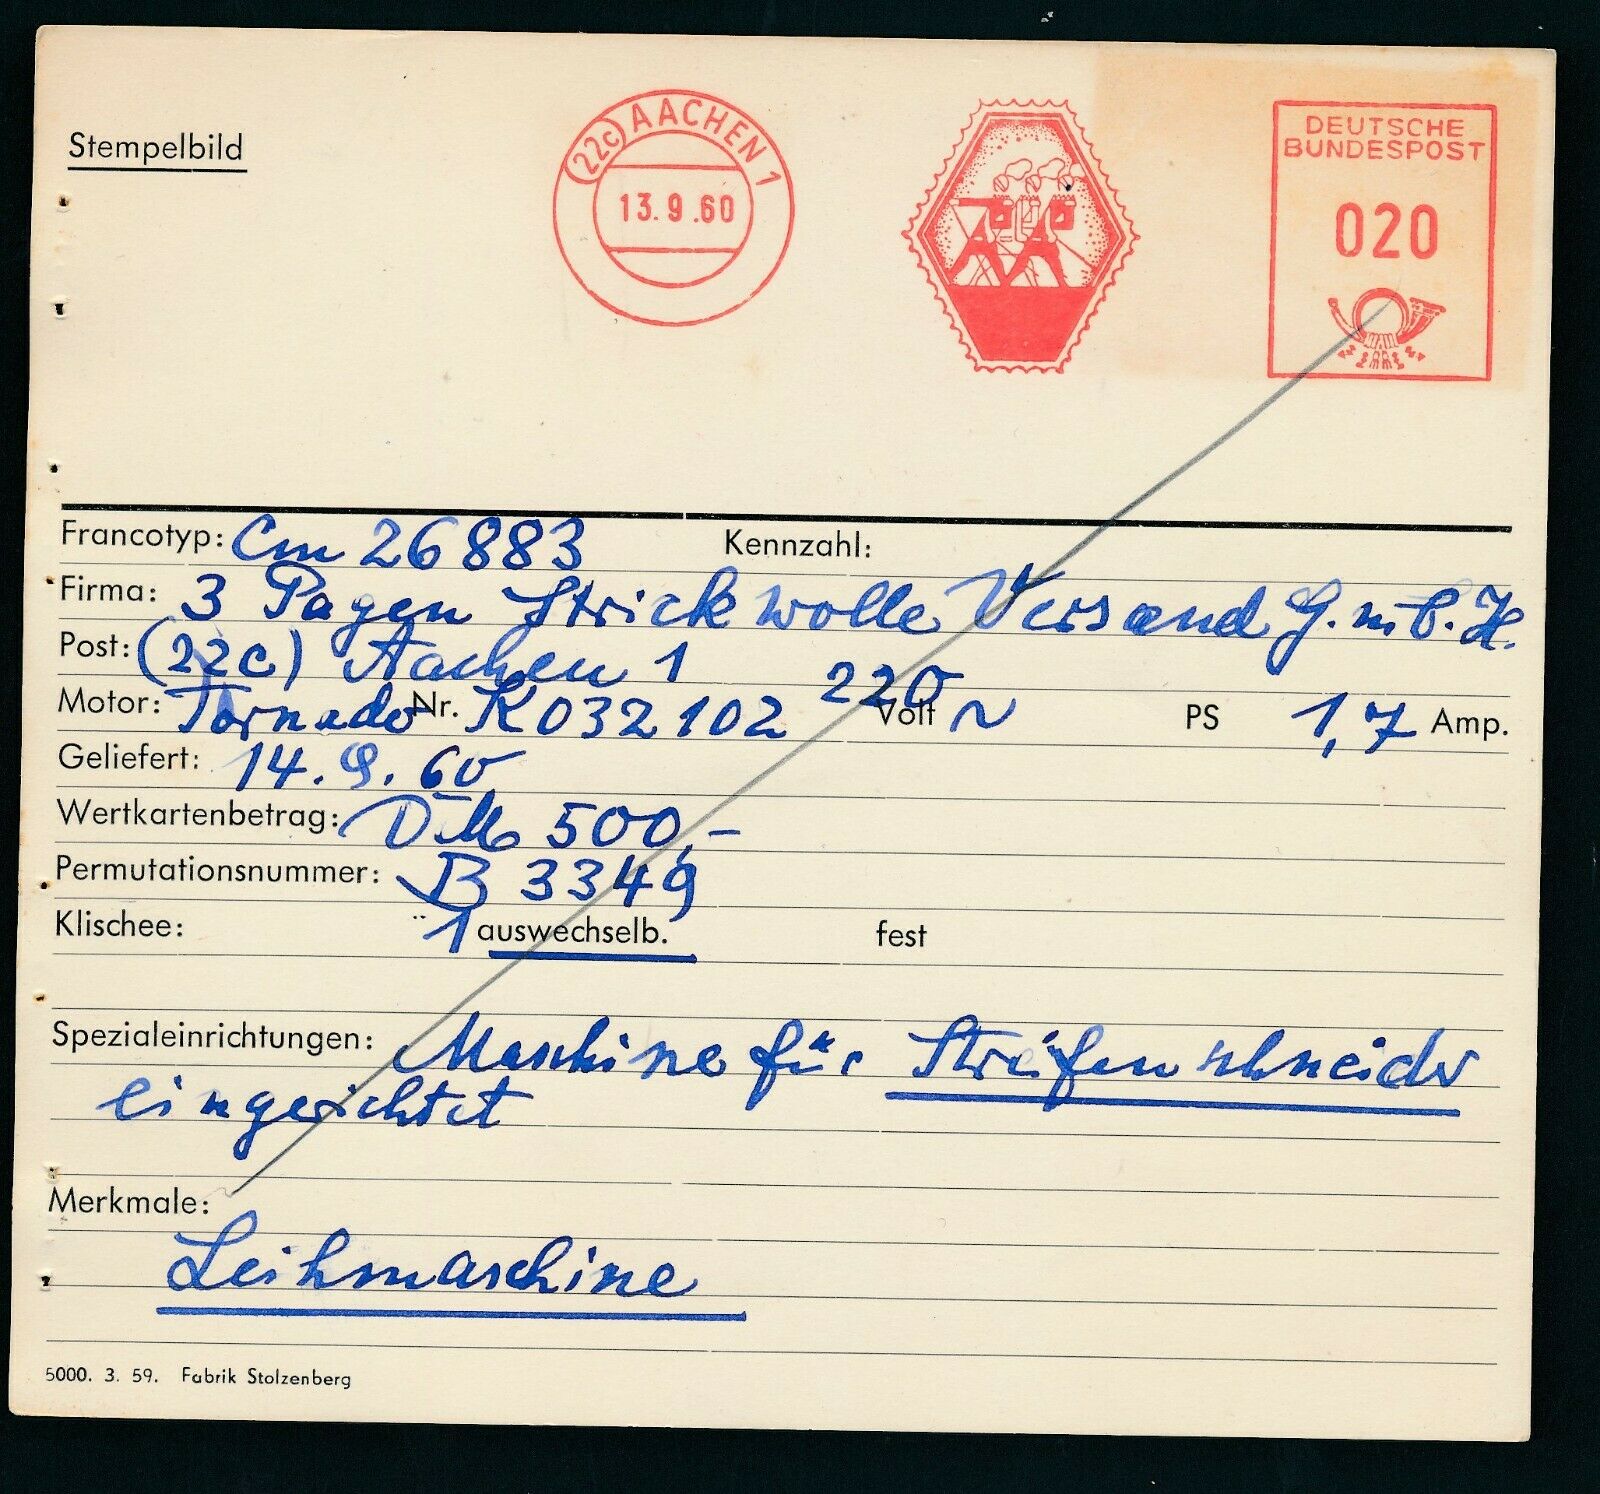 Stempelbild
(22c) AACHEN 1
13.9.60
DEUTSCHE
BUNDESPOST
020
Francotyp: Cm 26883 Kennzahl:
Firma: 3 Pagen Strickwolle Versand G.m.b.H.
Post: (22c) Aachen 1
Motor: Tornado Nr. K032102 220 Volt ~ PS 1,7 Amp.
Geliefert: 14.9.60
Wertkartenbetrag: DM 500,-
Permutationsnummer: B 3349
Klischee: 1 auswechselb. fest
Spezialeinrichtungen: Maschine für Streifenschneider
eingerichtet
Merkmale:
Leihmaschine
5000. 3. 59. Fabrik Stolzenberg